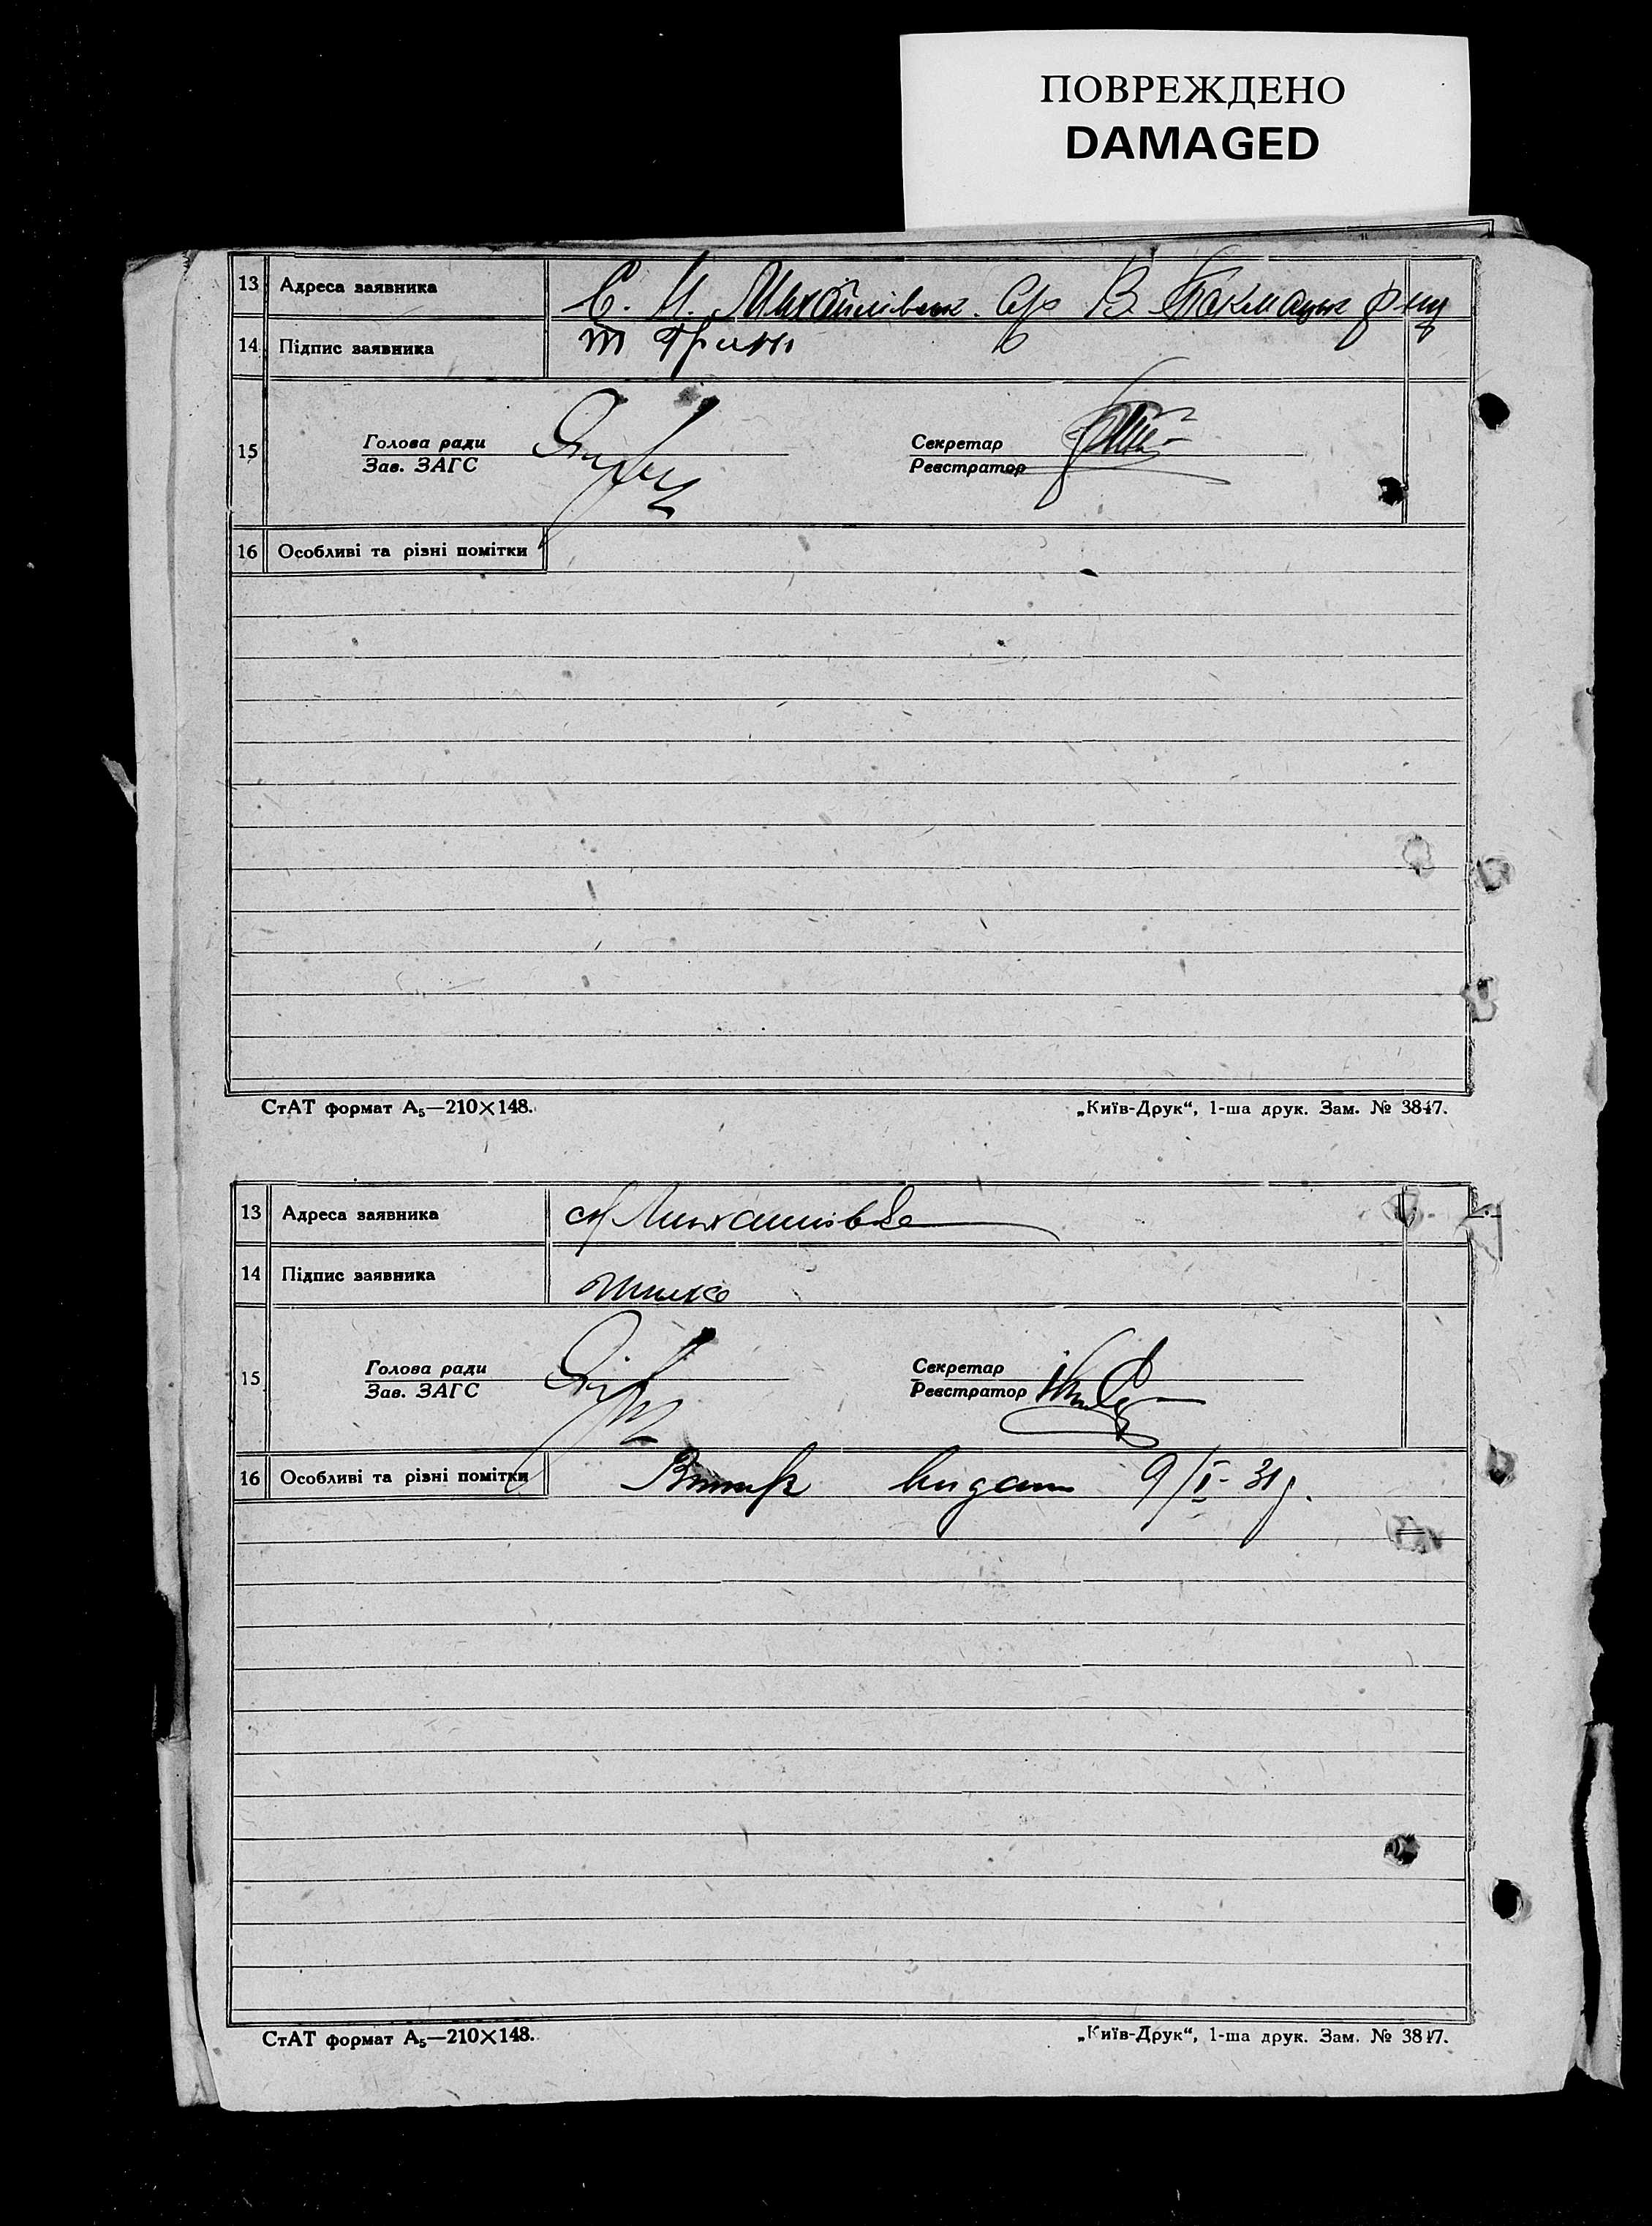 ПОВРЕЖДЕНО
DAMAGED
13 Адреса заявника С. Н. Михайлівськ. с/р В. Токмацьк
14 Підпис заявника
15 Голова ради Секретар
Зав. ЗАГС Реєстратор
16 Особливі та різні помітки
СтАТ формат А₅—210×148. „Київ-Друк“, 1-ша друк. Зам. № 3847.
13 Адреса заявника
14 Підпис заявника
15 Голова ради Секретар
Зав. ЗАГС Реєстратор
16 Особливі та різні помітки видат 9/I-31р.
СтАТ формат А₅—210×148. „Київ-Друк“, 1-ша друк. Зам. № 3847.